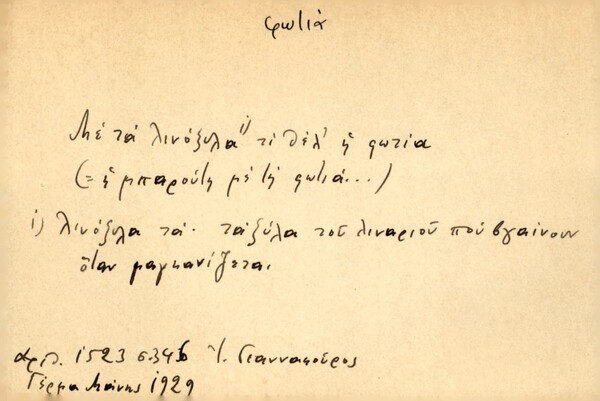 φωτιὰ
Μέ τά λινόξυλα¹⁾ τί θέλ' ἡ φωτία
(= ἡ μπαρούτη μέ τή φωτιά...)
1) λινόξυλα τά· τά ξύλα τοῦ λιναριοῦ πού βγαίνουν
ὅταν μαγκανίζεται.
ἀριθ. 1523 σ. 346 Ι. Γιανναμούρος
Γέρμα Μάνης 1929